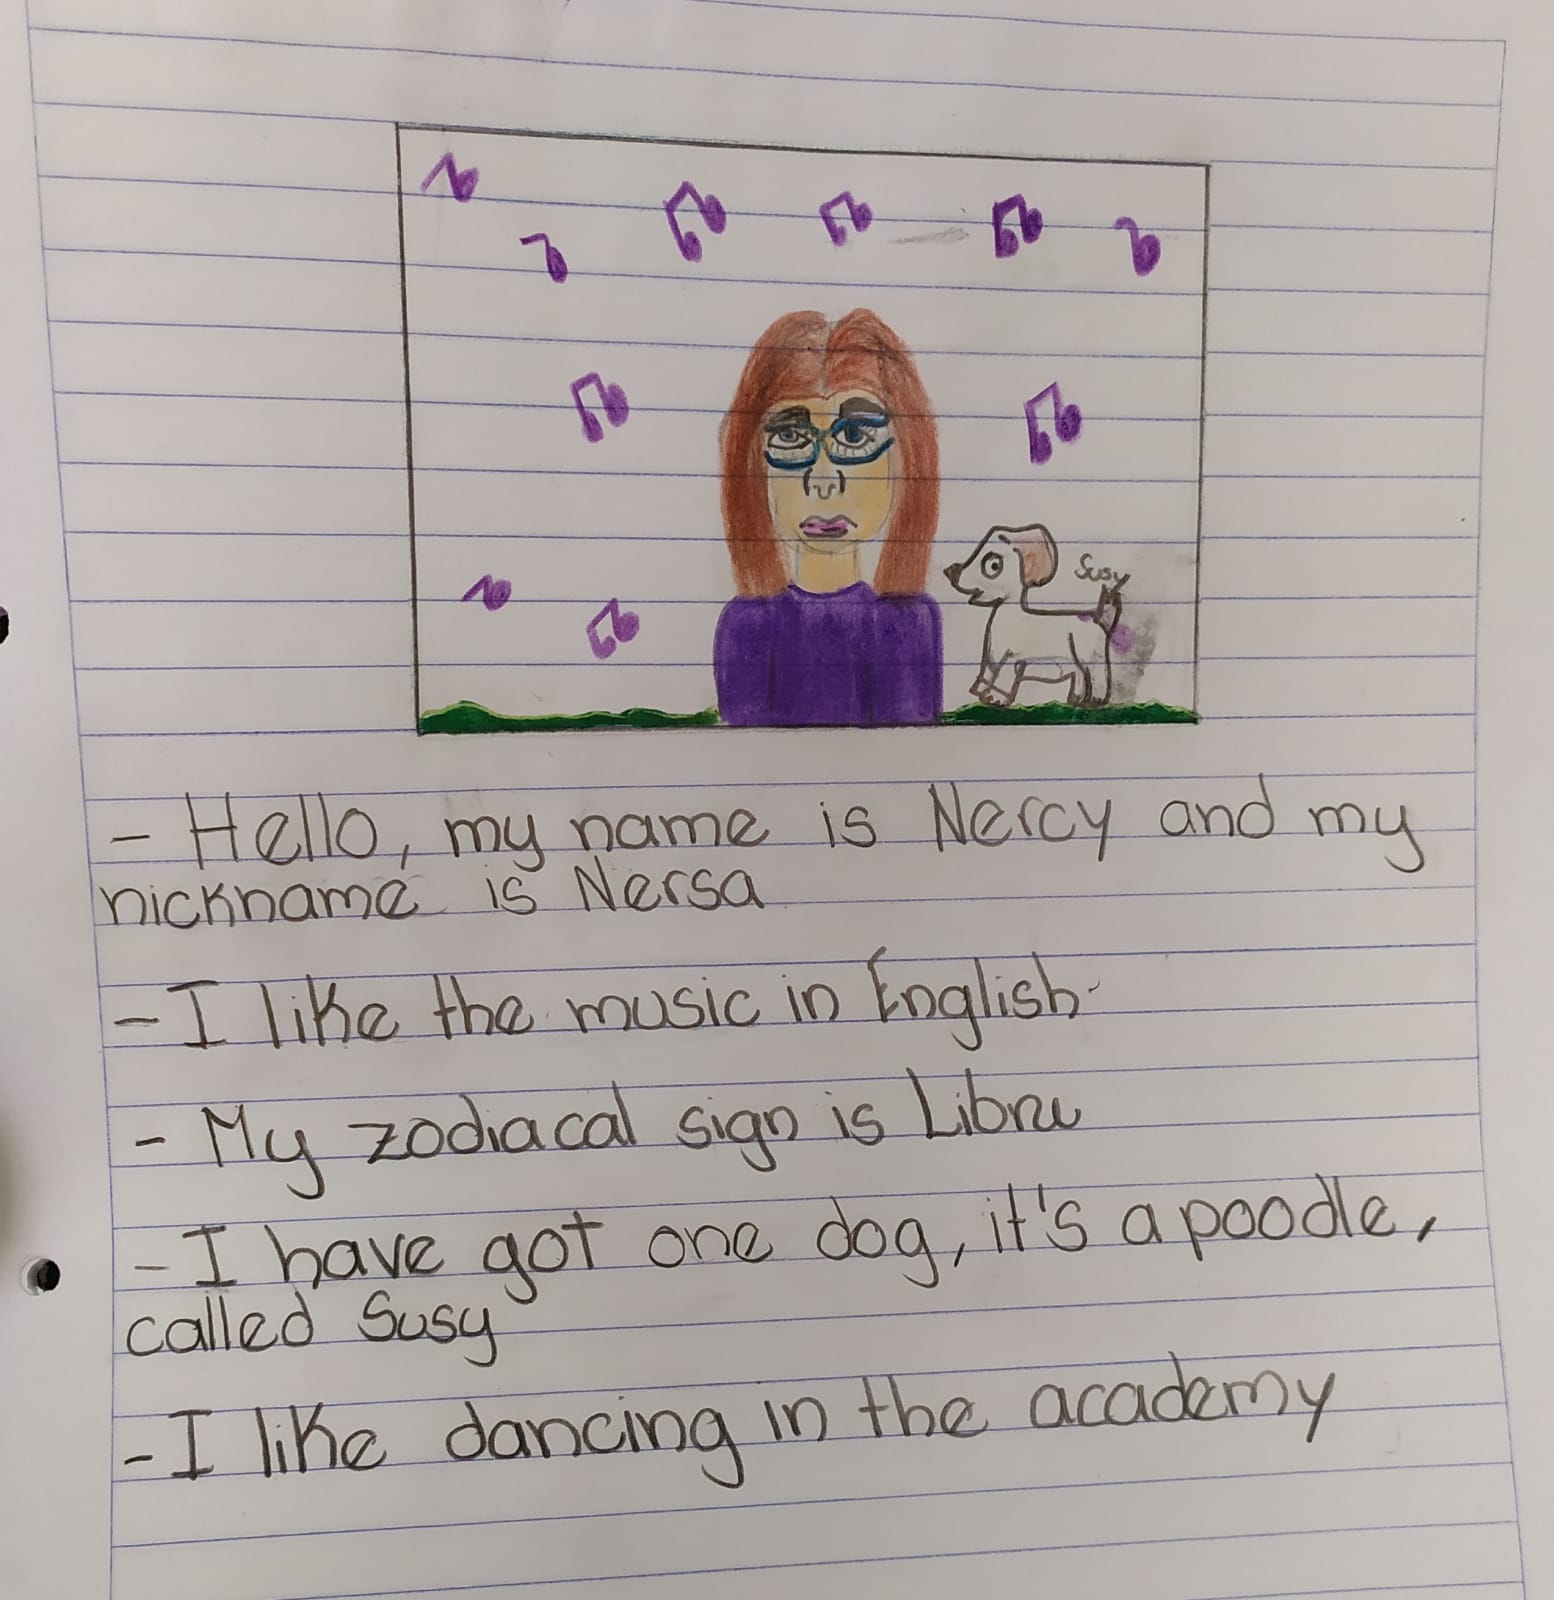 Susy
- Hello, my name is Nercy and my
nickname is Nersa
- I like the music in English.
- My zodiacal sign is Libra
- I have got one dog, it's a poodle,
called Susy
- I like dancing in the academy